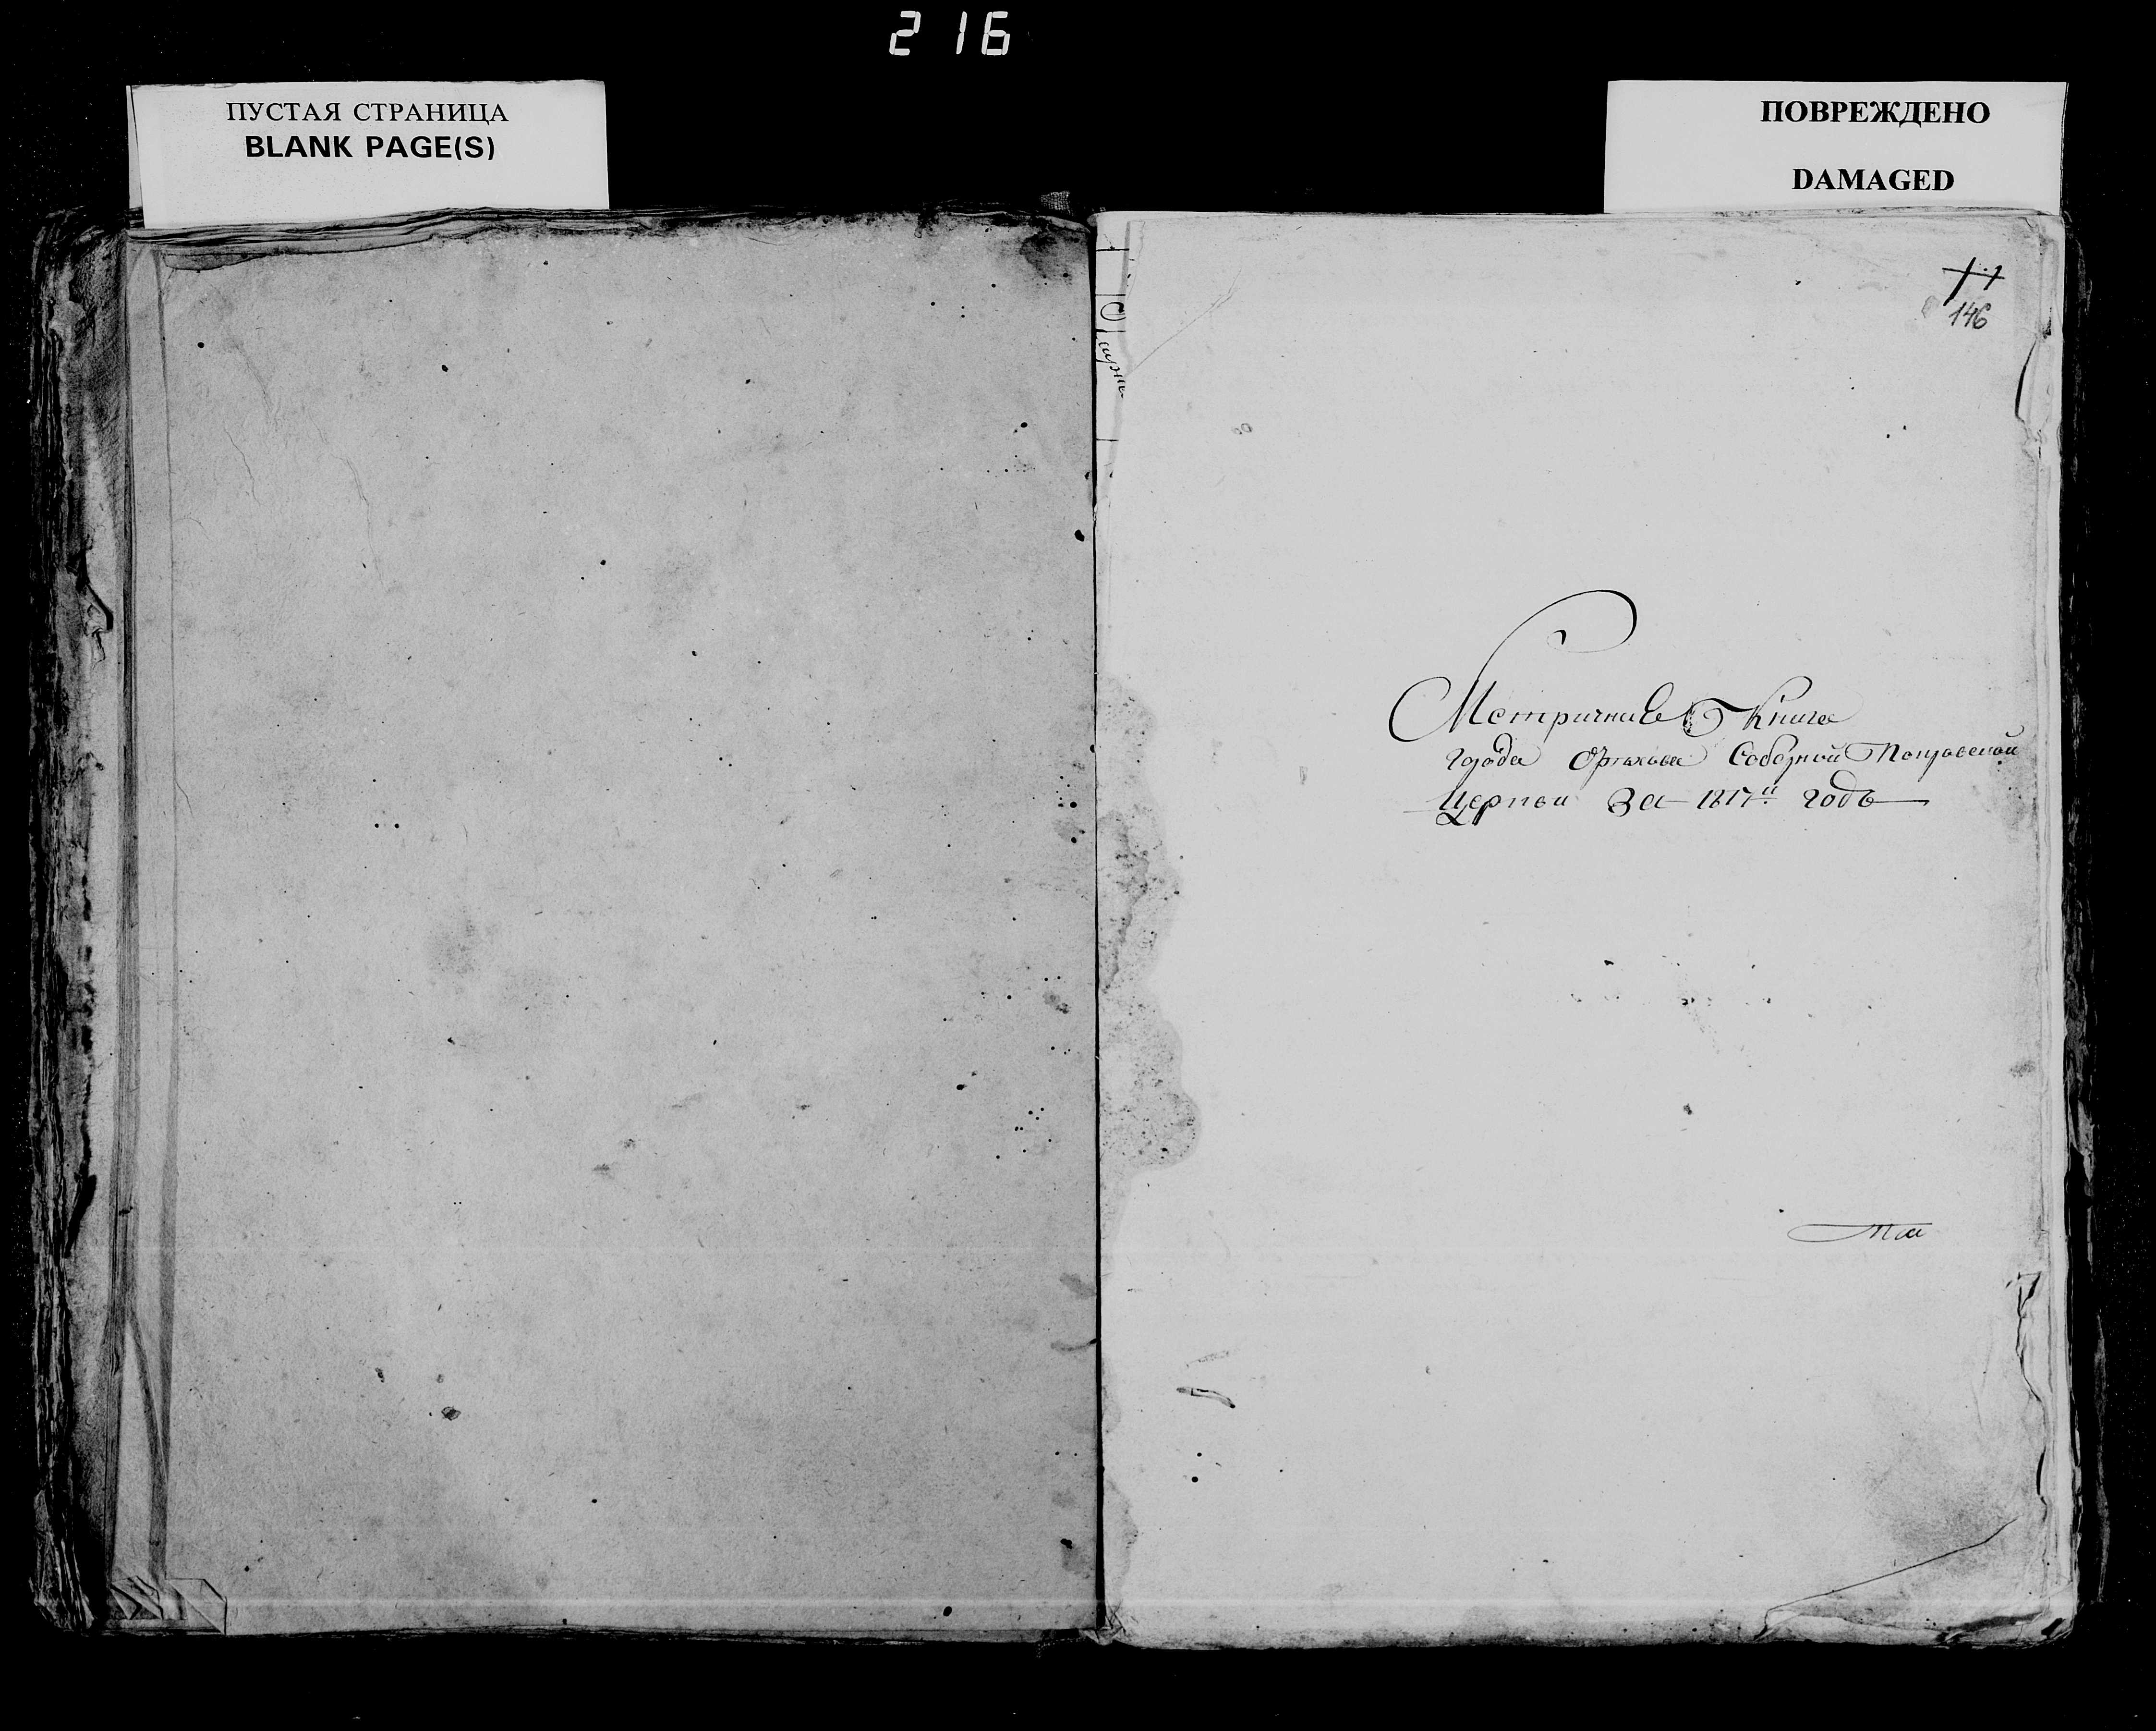 216
ПУСТАЯ СТРАНИЦА
BLANK PAGE(S)
ПОВРЕЖДЕНО
DAMAGED
146
Метричная Книга
города Орехова Соборной Покровской
Церкви За 1817й годъ